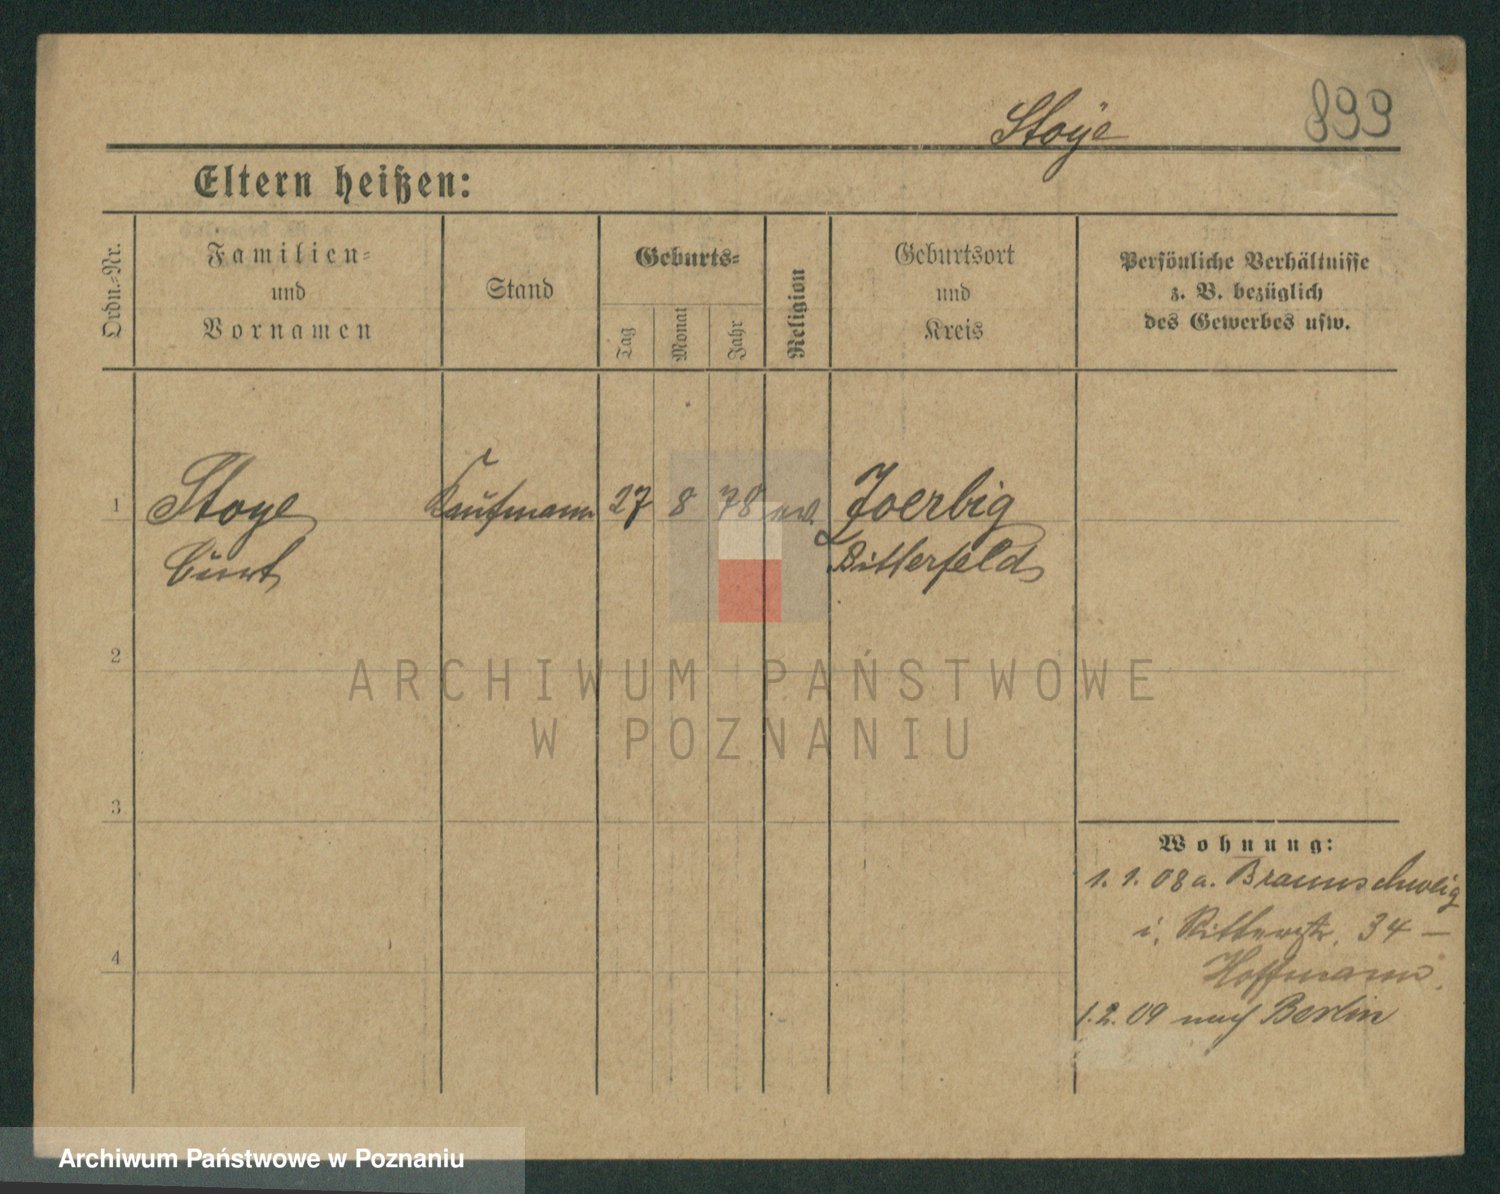 Stoÿe
899
Eltern heißen:
Ordn.-Nr.
Familien-
und
Vornamen
Stand
Geburts-
Tag
Monat
Jahr
Religion
Geburtsort
und
Kreis
Persönliche Verhältnisse
z. B. bezüglich
des Gewerbes usw.
1 Stoye Kaufmann 27 8 78 ev. Zoerbig
Curt Bitterfeld
2
ARCHIWUM PAŃSTWOWE
W POZNANIU
3
Wohnung:
1. 1. 08 a. Braunschweig
i. Ritterstr. 34 –
Hoffmann.
4
1.2.09 nach Berlin
Archiwum Państwowe w Poznaniu